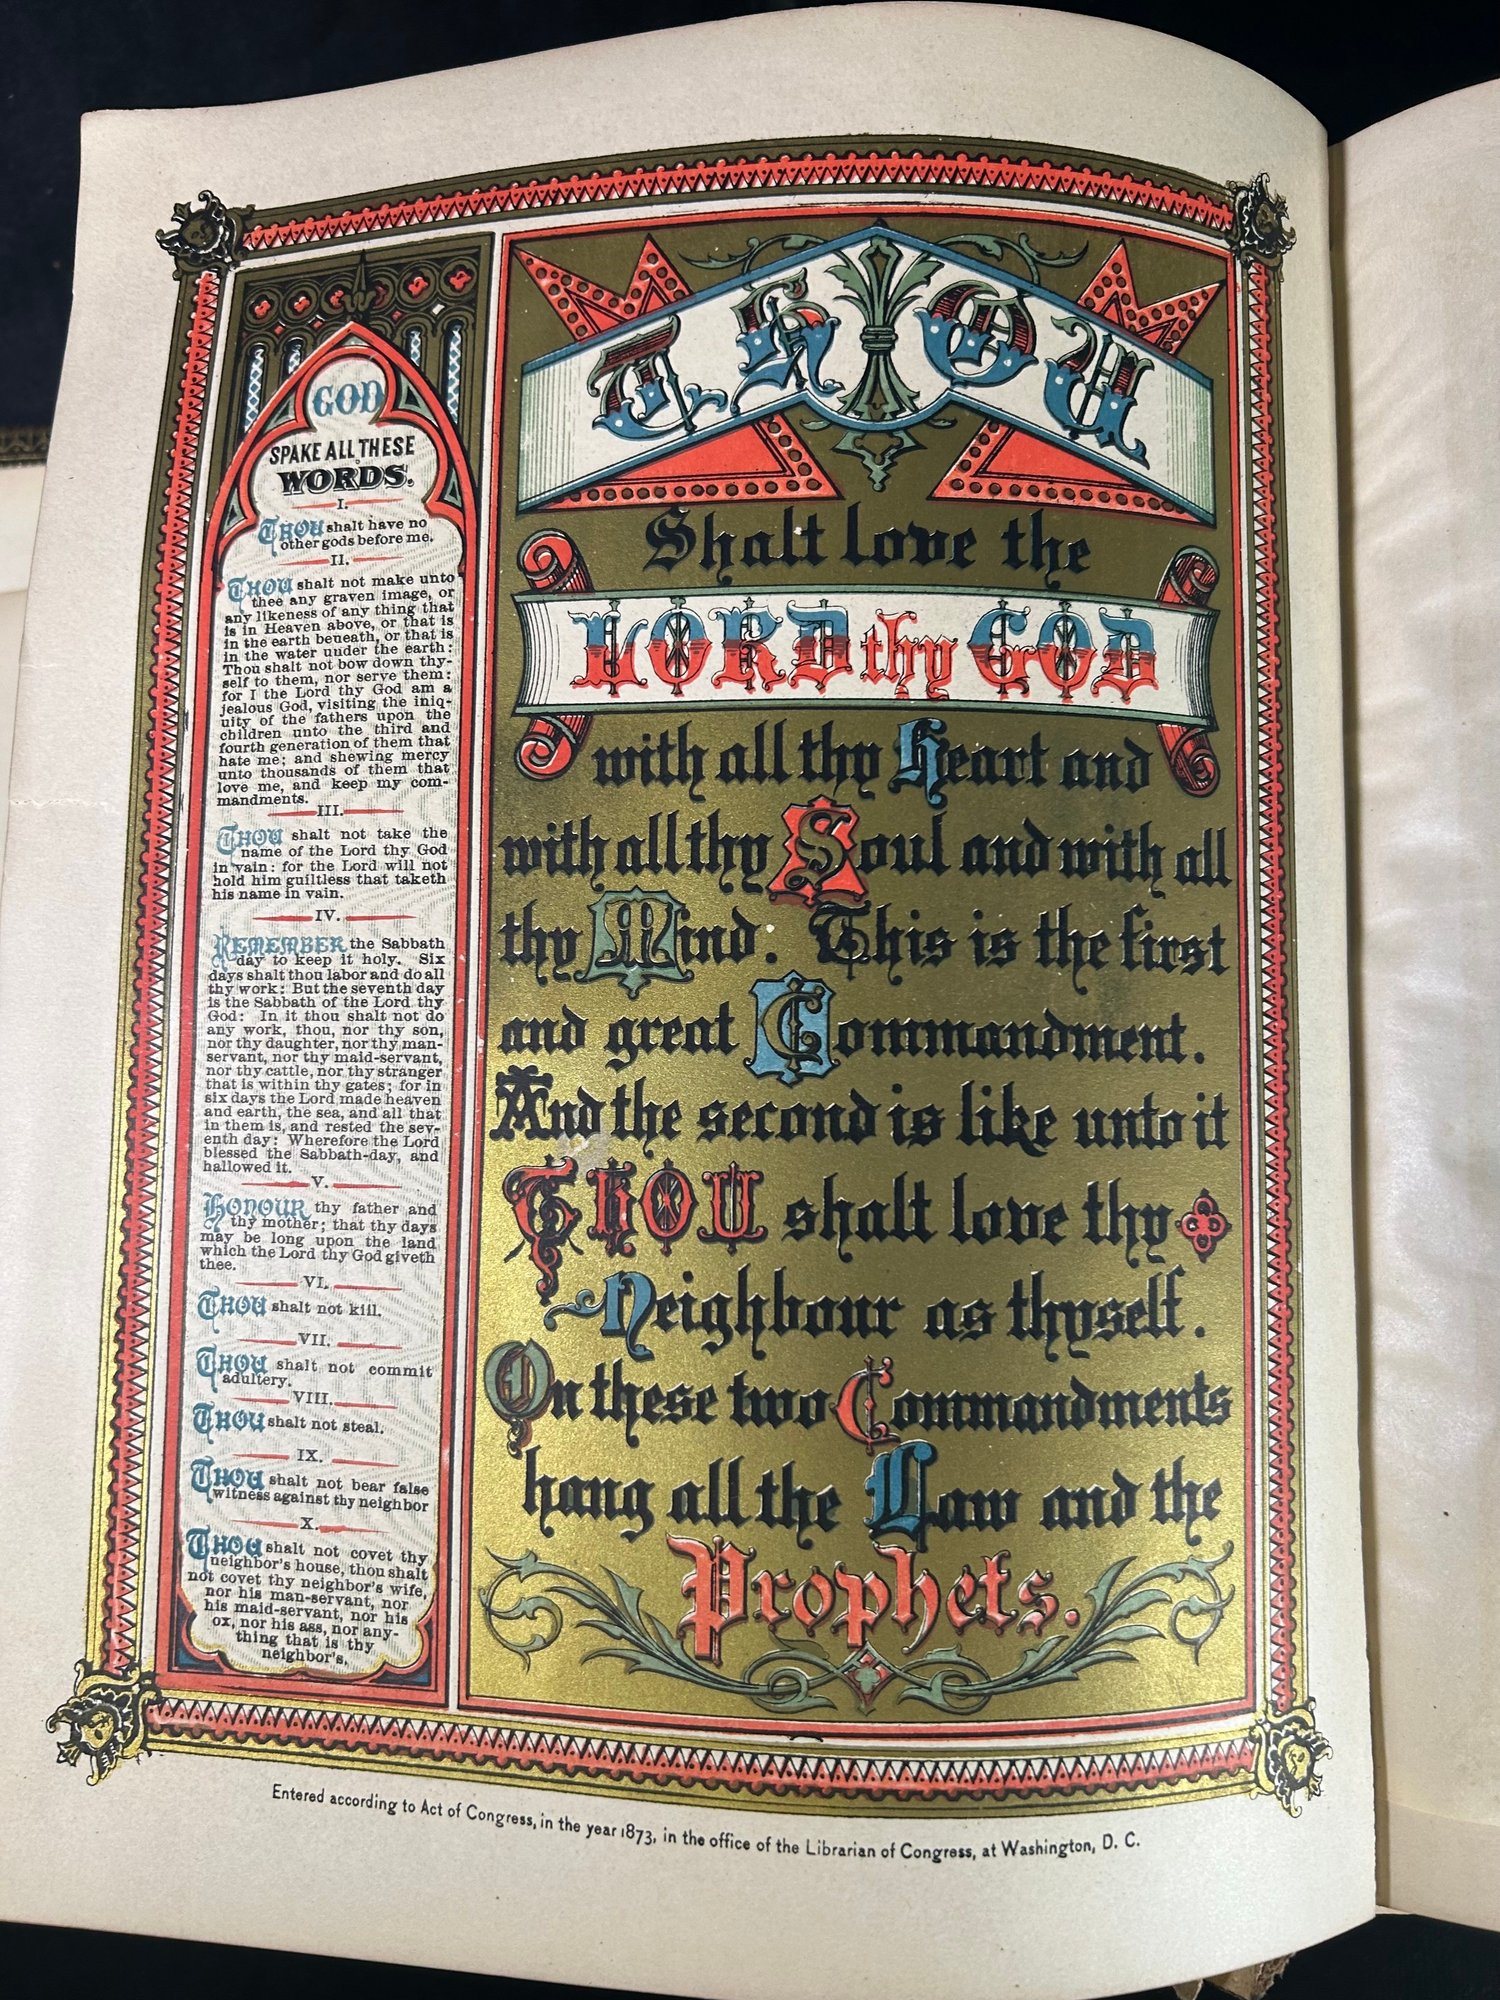 GOD
SPAKE ALL THESE
WORDS.
I.
THOU shalt have no
other gods before me.
II.
THOU shalt not make unto
thee any graven image, or
any likeness of any thing that
is in Heaven above, or that is
in the earth beneath, or that is
in the water under the earth:
Thou shalt not bow down thy-
self to them, nor serve them:
for I the Lord thy God am a
jealous God, visiting the iniq-
uity of the fathers upon the
children unto the third and
fourth generation of them that
hate me; and shewing mercy
unto thousands of them that
love me, and keep my com-
mandments.
III.
THOU shalt not take the
name of the Lord thy God
in vain: for the Lord will not
hold him guiltless that taketh
his name in vain.
IV.
REMEMBER the Sabbath
day to keep it holy. Six
days shalt thou labor and do all
thy work: But the seventh day
is the Sabbath of the Lord thy
God: In it thou shalt not do
any work, thou, nor thy son,
nor thy daughter, nor thy man-
servant, nor thy maid-servant,
nor thy cattle, nor thy stranger
that is within thy gates; for in
six days the Lord made heaven
and earth, the sea, and all that
in them is, and rested the sev-
enth day: Wherefore the Lord
blessed the Sabbath-day, and
hallowed it.
V.
HONOUR thy father and
thy mother; that thy days
may be long upon the land
which the Lord thy God giveth
thee.
VI.
THOU shalt not kill.
VII.
THOU shalt not commit
adultery.
VIII.
THOU shalt not steal.
IX.
THOU shalt not bear false
witness against thy neighbor
X.
THOU shalt not covet thy
neighbor's house, thou shalt
not covet thy neighbor's wife,
nor his man-servant, nor
his maid-servant, nor his
ox, nor his ass, nor any-
thing that is thy
neighbor's.
THOU
Shalt love the
LORD thy GOD
with all thy Heart and
with all thy Soul and with all
thy Mind. This is the first
and great Commandment.
And the second is like unto it
THOU shalt love thy
Neighbour as thyself.
On these two Commandments
hang all the Law and the
Prophets.
Entered according to Act of Congress, in the year 1873, in the office of the Librarian of Congress, at Washington, D. C.